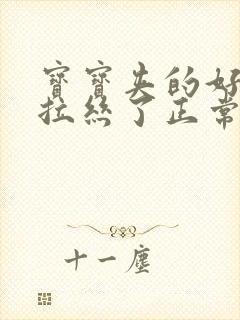 寶寶失的好
拉絲了正常
十一塵